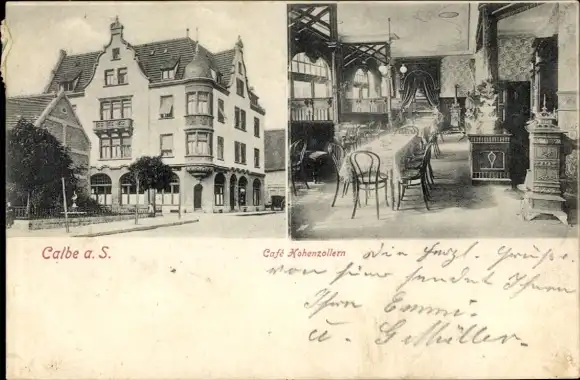 Calbe a. S.
Café Hohenzollern
Die herzl. Grüße
von hier sendet Ihnen
Ihre Emmi.
u. G. Müller.